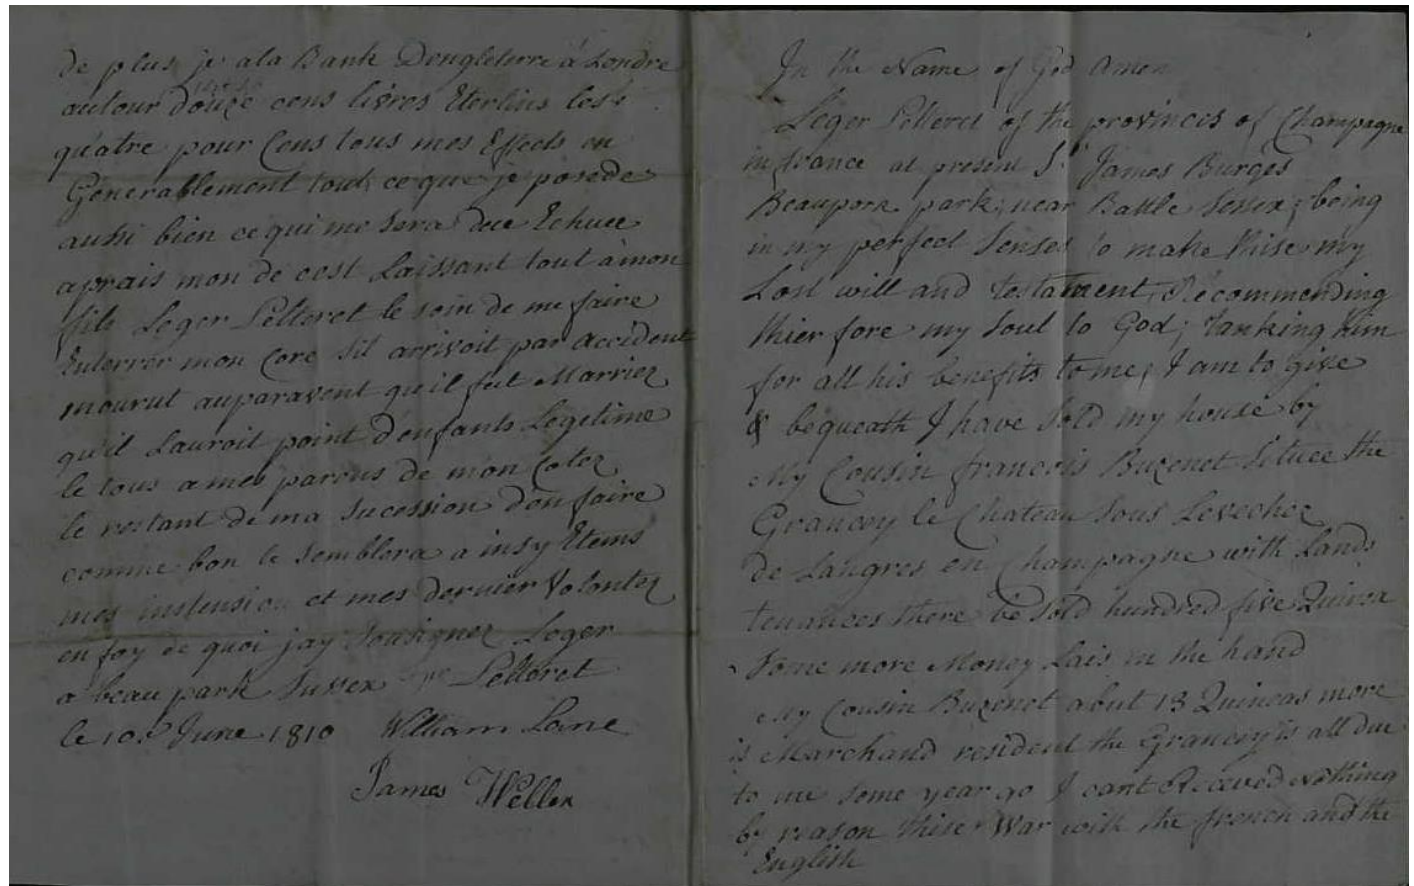 de plus je ala Bank Dengleterre a Londre
autour douze cens livres Sterlins les
quatre pour Cens tous mes Effects en
Generablement tout ce que je posede
aussi bien ce qui me sera due Echuee
aprais mon de cest Laissant tout a mon
fils Leger Pelteret le soin de me faire
Enterrer mon Core sil arrivoit par accident
mourut auparavent qu'il fut Marriez
qu'il Lauroit point d'enfants Legetime
le tous a mes parens de mon Cotez
le restant de ma sucession d'en faire
comme bon le semblera a insy Etems
mes instension et mes dernier Volontez
en foy de quoi jay Sousignez Leger
a beau park Sussex Pelteret
le 10 June 1810 William Lane
James Weller
In the Name of God Amen
Leger Pelteret of the provinces of Champagne
in france at present Sr James Burges
Beauporx park, near Batle Sessex, being
in my perfect Senses to make thise my
Last will and testament, Recommending
thier fore my Soul to God; tanking him
for all his benefits to me, I am to give
& bequeath I have Sold my house by
My Cousin francois Buzenet Setuee the
Grancey le Chateau Sous Levechez
de Langres en Champagne with Lands
tenances there be Sold hundred five Quinea
Some more Money Lais in the hand
My Cousin Buzenet abut 13 Quineas more
is Marchand resident the Grancey is all due
to me some year go I cant Receved Nothing
by reason thise War with the french and the
English